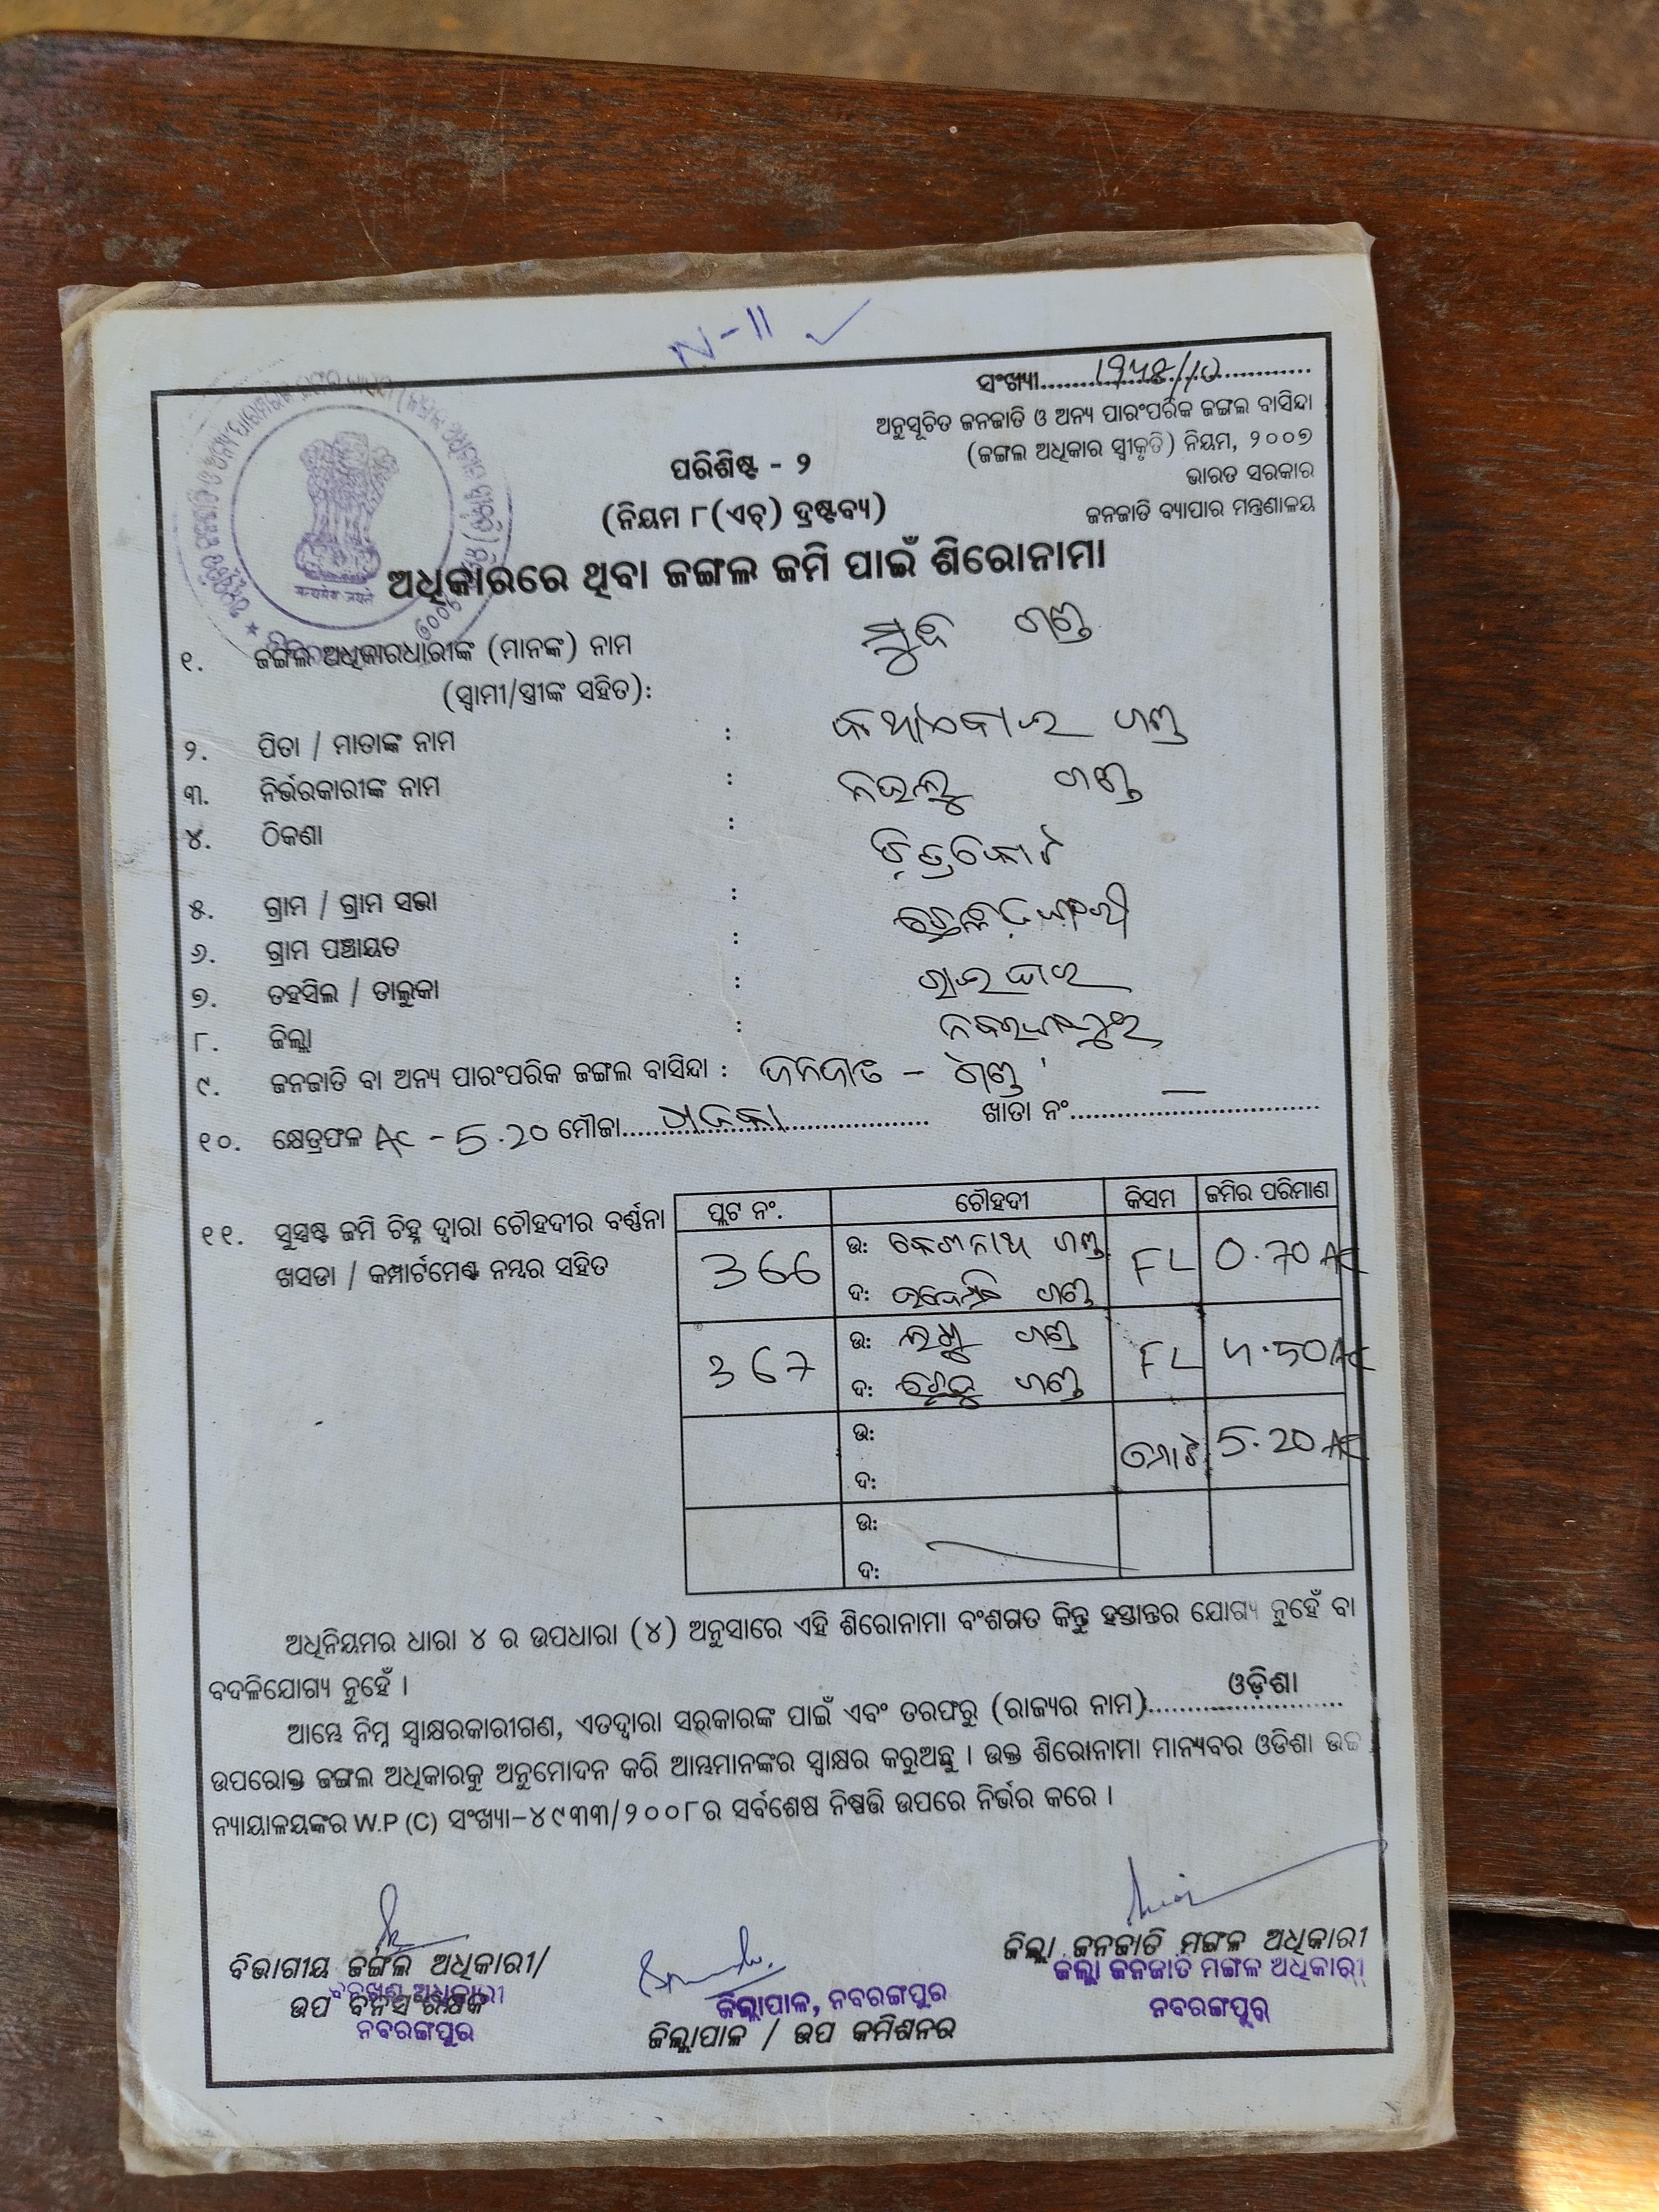 N-11
ସଂଖ୍ୟା
ଅନୁସୂଚିତ ଜନଜାତି ଓ ଅନ୍ୟ ପାରଂପରିକ ଜଙ୍ଗଲ ବାସିନ୍ଦା
(ଜଙ୍ଗଲ ଅଧିକାର ସ୍ୱୀକୃତି) ନିୟମ, ୨୦୦୭
ଭାରତ ସରକାର
ଜନଜାତି ବ୍ୟାପାର ମନ୍ତ୍ରଣାଳୟ
ପରିଶିଷ୍ଟ - ୨
(ନିୟମ ୮(ଏଚ୍) ଦ୍ରଷ୍ଟବ୍ୟ)
ଅଧିକାରରେ ଥିବା ଜଙ୍ଗଲ ଜମି ପାଇଁ ଶିରୋନାମା
୧. ଜଙ୍ଗଲ ଅଧିକାରଧାରୀଙ୍କ (ମାନଙ୍କ) ନାମ ଗଣ୍ଡ
(ସ୍ୱାମୀ/ସ୍ତ୍ରୀଙ୍କ ସହିତ):
୨. ପିତା / ମାତାଙ୍କ ନାମ : ଗଣ୍ଡ
୩. ନିର୍ଭରକାରୀଙ୍କ ନାମ : ଗଣ୍ଡ
୪. ଠିକଣା :
୫. ଗ୍ରାମ / ଗ୍ରାମ ସଭା :
୬. ଗ୍ରାମ ପଞ୍ଚାୟତ :
୭. ତହସିଲ / ତାଲୁକା : ରାଇଘର
୮. ଜିଲ୍ଲା : ନବରଙ୍ଗପୁର
୯. ଜନଜାତି ବା ଅନ୍ୟ ପାରଂପରିକ ଜଙ୍ଗଲ ବାସିନ୍ଦା : ଜନଜାତି - ଗଣ୍ଡ
୧୦. କ୍ଷେତ୍ରଫଳ AC - 5.20 ମୌଜା ଖାତା ନଂ. —
୧୧. ସୁସ୍ପଷ୍ଟ ଜମି ଚିହ୍ନ ଦ୍ୱାରା ଚୌହଦୀର ବର୍ଣ୍ଣନା
ଖସଡା / କମ୍ପାର୍ଟମେଣ୍ଟ ନମ୍ବର ସହିତ
ପ୍ଲଟ ନଂ. ଚୌହଦୀ କିସମ ଜମିର ପରିମାଣ
366 ଉ: ଗଣ୍ଡ FL 0.70 AC
ଦ: ଗଣ୍ଡ
367 ଉ: ଗଣ୍ଡ FL ୪.50 AC
ଦ: ଗଣ୍ଡ
ଉ: ମୋଟ 5.20 AC
ଦ:
ଉ:
ଦ:
ଅଧିନିୟମର ଧାରା ୪ ର ଉପଧାରା (୪) ଅନୁସାରେ ଏହି ଶିରୋନାମା ବଂଶଗତ କିନ୍ତୁ ହସ୍ତାନ୍ତର ଯୋଗ୍ୟ ନୁହେଁ ବା
ବଦଳିଯୋଗ୍ୟ ନୁହେଁ ।
ଆମ୍ଭେ ନିମ୍ନ ସ୍ୱାକ୍ଷରକାରୀଗଣ, ଏତଦ୍ୱାରା ସରକାରଙ୍କ ପାଇଁ ଏବଂ ତରଫରୁ (ରାଜ୍ୟର ନାମ) ଓଡ଼ିଶା
ଉପରୋକ୍ତ ଜଙ୍ଗଲ ଅଧିକାରକୁ ଅନୁମୋଦନ କରି ଆମ୍ଭମାନଙ୍କର ସ୍ୱାକ୍ଷର କରୁଅଛୁ । ଉକ୍ତ ଶିରୋନାମା ମାନ୍ୟବର ଓଡିଶା ଉଚ୍ଚ
ନ୍ୟାୟାଳୟଙ୍କର W.P (C) ସଂଖ୍ୟା-୪୯୩୩/୨୦୦୮ର ସର୍ବଶେଷ ନିଷ୍ପତ୍ତି ଉପରେ ନିର୍ଭର କରେ ।
ବିଭାଗୀୟ ଜଙ୍ଗଲ ଅଧିକାରୀ/
ବନଖଣ୍ଡ ଅଧିକାରୀ
ଉପ ବନସଂରକ୍ଷକ
ନବରଙ୍ଗପୁର
ଜିଲ୍ଲାପାଳ, ନବରଙ୍ଗପୁର
ଜିଲ୍ଲାପାଳ / ଉପ କମିଶନର
ଜିଲ୍ଲା ଜନଜାତି ମଙ୍ଗଳ ଅଧିକାରୀ
ଜିଲ୍ଲା ଜନଜାତି ମଙ୍ଗଳ ଅଧିକାରୀ
ନବରଙ୍ଗପୁର